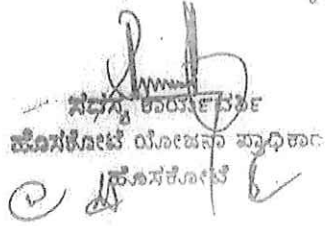 ಸದಸ್ಯ ಕಾರ್ಯದರ್ಶಿ
ಹೊಸಕೋಟೆ ಯೋಜನಾ ಪ್ರಾಧಿಕಾರ
ಹೊಸಕೋಟೆ